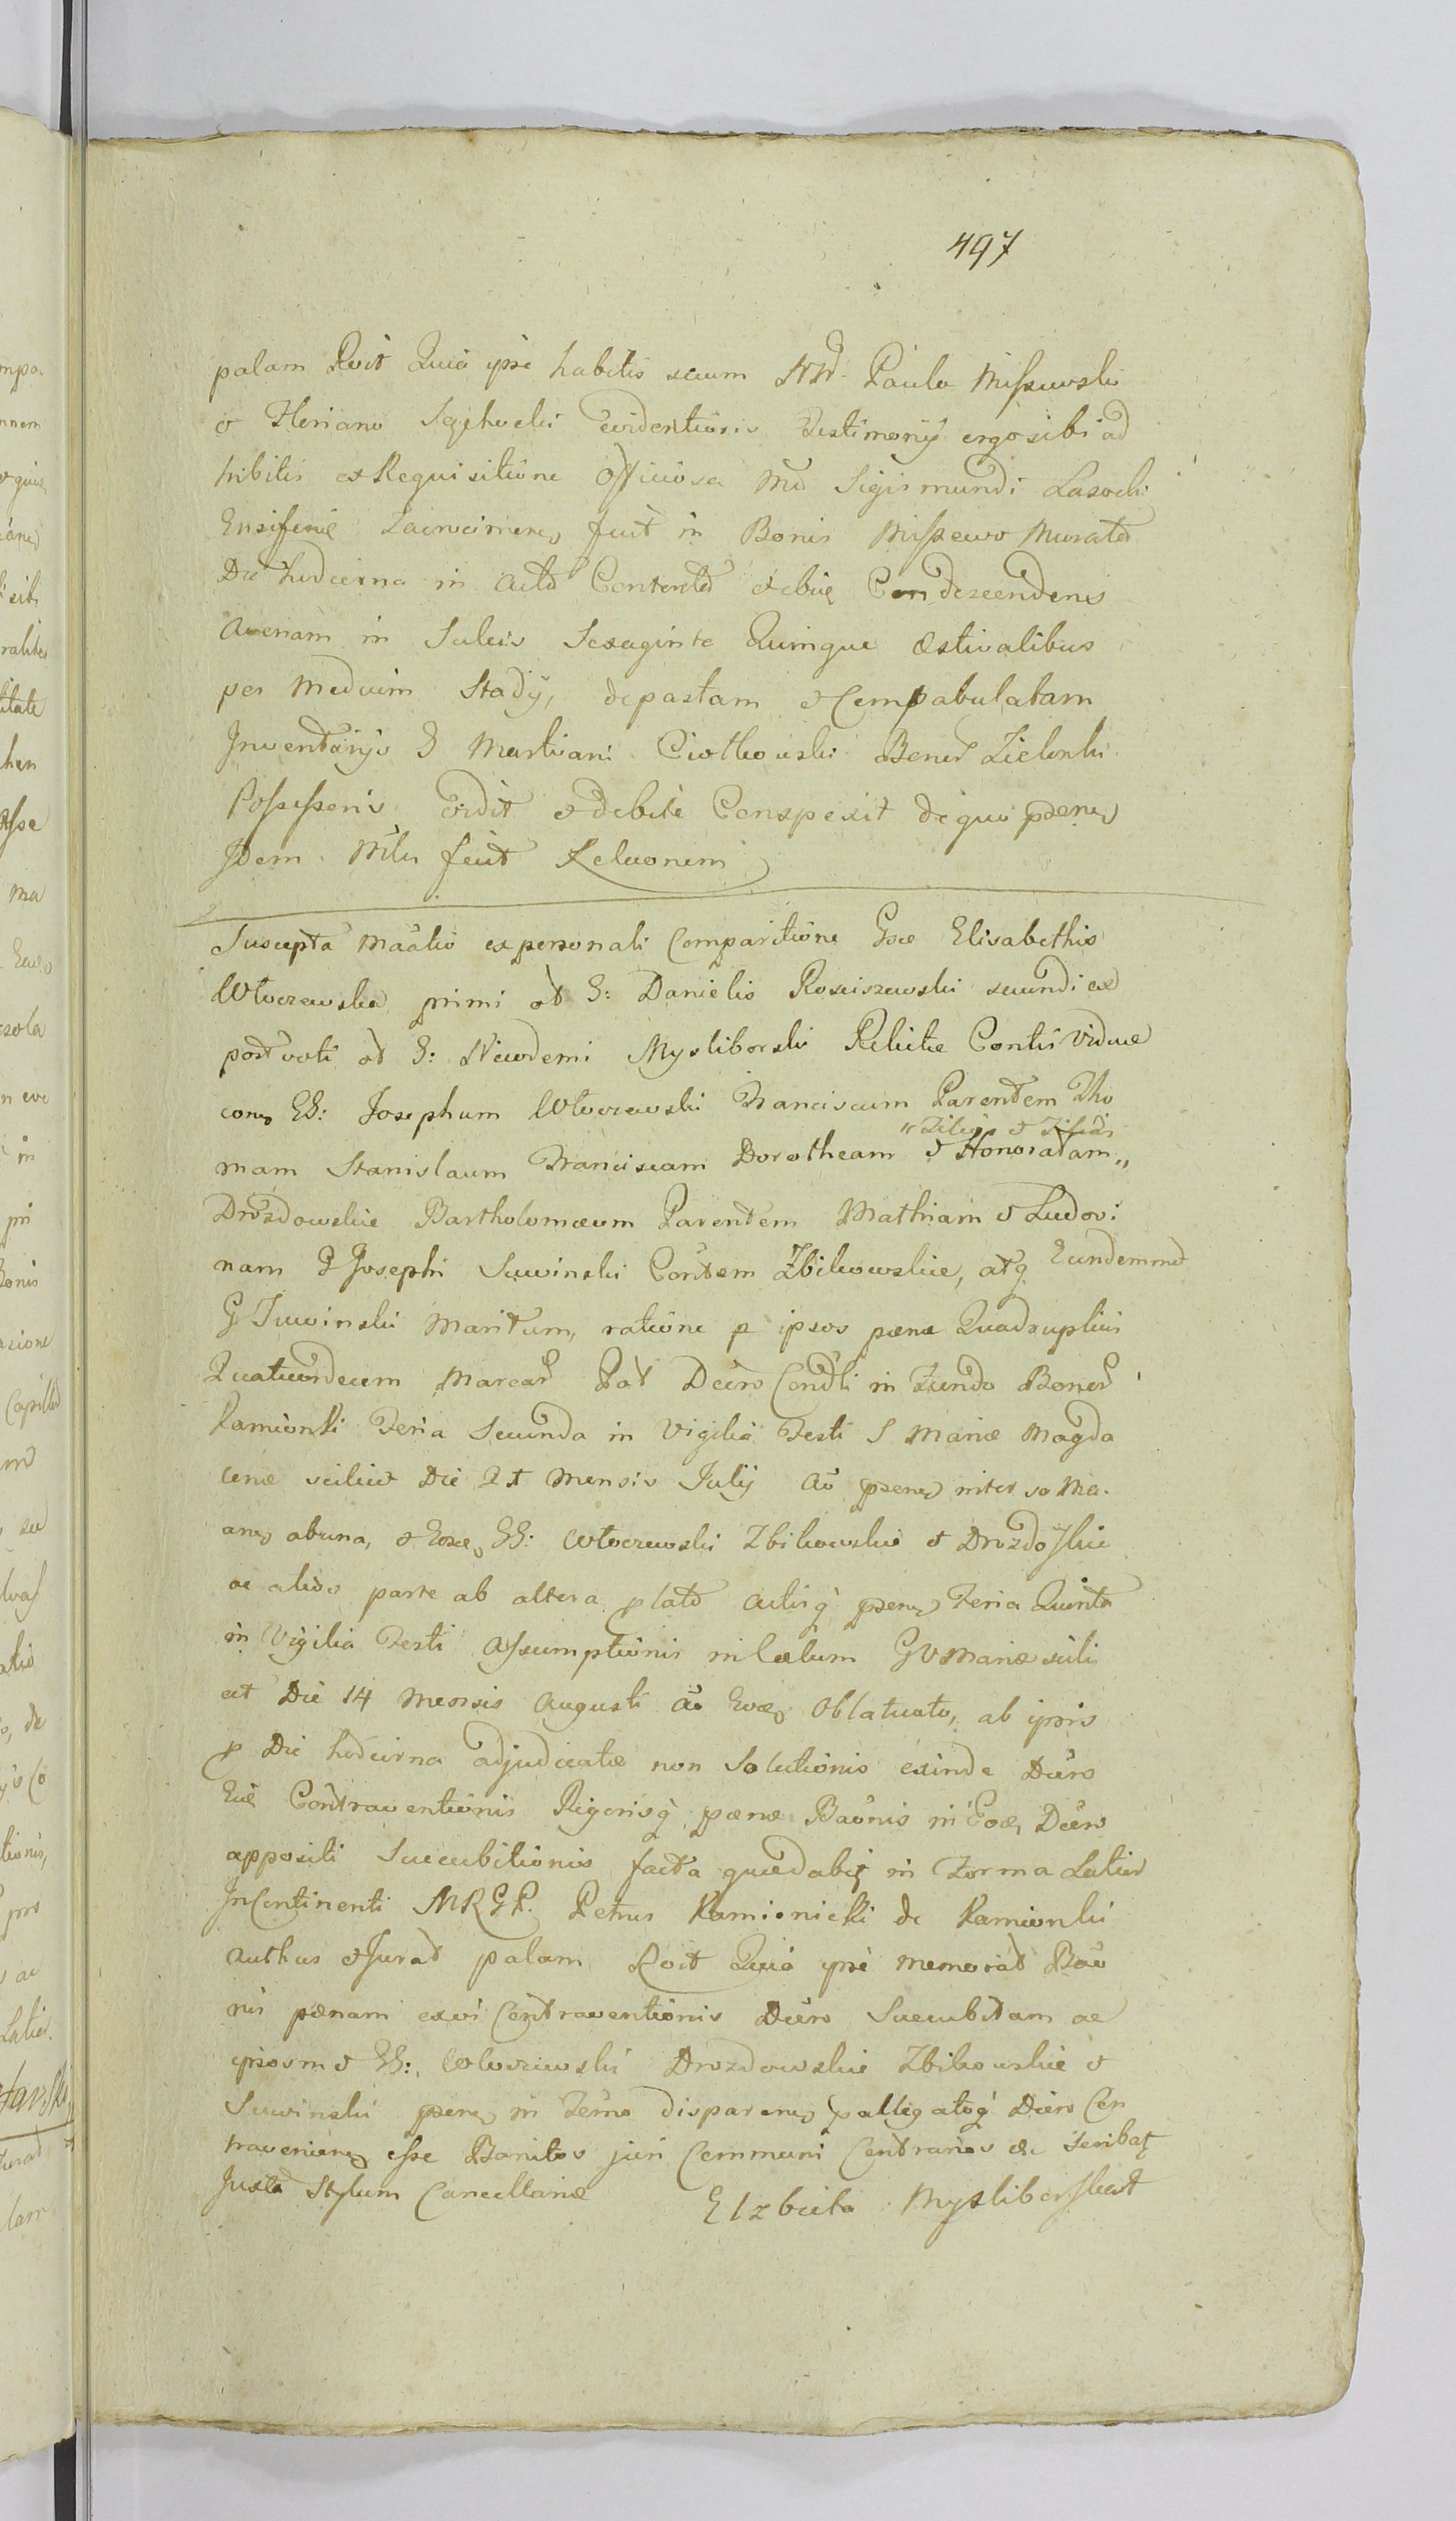 497
palam Rcit Quia ipse habitis secum NN Paulo Misszewski
et Floriano evidentioris Testimonij ergo sibi ad
hibitis ex Requisitione Officiosa Mci Sigismundi Lasocki
Ensiferi fuit in Bonis Misszewo Murata
Die hodierna in Actu Contento Condescendens
Avenam in Sulcis Sexaginta Quinque Æstivalibus
per Medium Stadij, depastam et Compabulatam
Inventarijs G Martiani Ciotkowski Bonor
Possessoris vidit et debite Conspexit de quo psens
Idem Mlis fecit Relaonem
Suscepta Maatio ex personali Comparitione Gsæ Elisabethis
Wloczewska primi ad G: Danielis Rosciszewski secundi ex
post voti ad G: Nicodemi Mysliborski Relictæ Contis Viduæ
cong GG: Josephum Wloczewski Franciscum Parentem Tho
" Filios et Filias
mam Stanislaum Franciscam Dorotheam et Honoratam "
Drozdowskie Bartholomæum Parentem Mathiam et Ludovi
nam G Josephi Suwinski Contem Zbikowskie, atq Eundemmet
G Suwinski Maritum, ratione p ipsos pœnæ Quadruplicis
Quatuordecim Marcar Pat Decro Condti in Fundo Bonor
Kamionki Feria Secunda in Vigilia Festi S Mariæ Magda
lenæ scilicet Die 21 Mensis Julij Ao psens inter se Ma.
ang ab una, et GG: Wloczewski Zbikowskie et Drozdoskie
ac alios parte ab altera plato Actisq psens Feria Quinta
in Vigilia Festi Assumptionis in Cælum GV Mariæ scili
cet Die 14 Mensis Augusti Ao Oblatuato, ab ipsis
p Die hodierna adjudicatæ non Solutionis exinde Decro
Contraventionis Rigorisq pœnæ Baonis in Decro
appositi Succubitionis facta in Forma Latior
InContinenti MRGP. Petrus Kamionicki de Kamionki
Authus et Jurat palam Rcit Quia ipse memorat Bao
nis pœnam ex vi Contraventionis Decro Succubitam ac
ipsosmet GG: Wloczewski Drozdowskie Zbikowskie et
Suwinski psens in Temo disparens palleg atoq Decro Con
traveniens esse Banitos juri Communi Contrarios
Juxta Stylum Cancellariæ Elzbieta Mysliborska